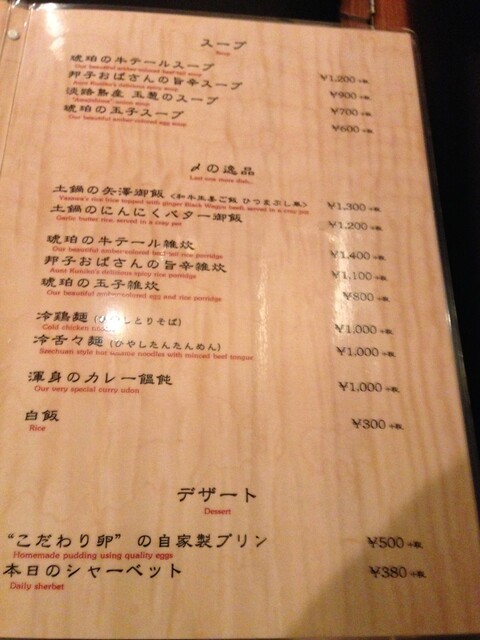 スープ
Soup
琥珀の牛テールスープ
Our beautiful amber-colored beef tail soup
¥1,200 +税
邦子おばさんの旨辛スープ
Aunt Kuniko's delicious spicy soup
¥900 +税
淡路島産 玉葱のスープ
"Awajishima" onion soup
¥700 +税
琥珀の玉子スープ
Our beautiful amber-colored egg soup
¥600 +税
〆の逸品
Last one more dish..
土鍋の矢澤御飯 (和牛生姜ご飯 ひつまぶし風)
Yazawa's rice topped with ginger Black Wagyu beef, served in a clay pot
¥1,300 +税
土鍋のにんにくバター御飯
Garlic butter rice, served in a clay pot
¥1,200 +税
琥珀の牛テール雑炊
Our beautiful amber-colored beef tail rice porridge
¥1,400 +税
邦子おばさんの旨辛雑炊
Aunt Kuniko's delicious spicy rice porridge
¥1,100 +税
琥珀の玉子雑炊
Our beautiful amber-colored egg and rice porridge
¥800 +税
冷鶏麺 (ひやしとりそば)
Cold chicken
¥1,000 +税
冷舌々麺 (ひやしたんたんめん)
Szechuen style hot sesame noodles with minced beef tongue
¥1,000 +税
渾身のカレー饂飩
Our very special curry udon
¥1,000 +税
白飯
Rice
¥300 +税
デザート
Dessert
“こだわり卵” の自家製プリン
Homemade pudding using quality eggs
¥500 +税
本日のシャーベット
Daily sherbet
¥380 +税